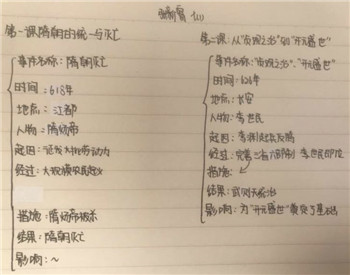 第一课隋朝的统一与灭亡
事件名称：隋朝灭亡
时间：618年
地点：江都
人物：隋炀帝
起因：
经过：大规模农民起义
措施：隋炀帝被杀
结果：隋朝灭亡
影响：～
第二课：从"贞观之治"到"开元盛世"
事件名称："贞观之治"、"开元盛世"
时间：626年
地点：长安
人物：李世民
起因：
经过：完善三省六部制 李世民即位
措施：
结果：贞观之治
影响：为"开元盛世"奠定了基础